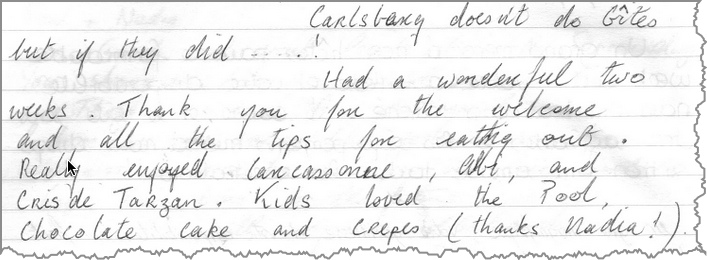 Carlsberg doesn't do Gîtes
but if they did ....!
Had a wonderful two
weeks. Thank you for the welcome
and all the tips for eating out.
Really enjoyed Carcassonne, Albi, and
Cris de Tarzan. Kids loved the Pool,
Chocolate cake and crepes (thanks Nadia!).